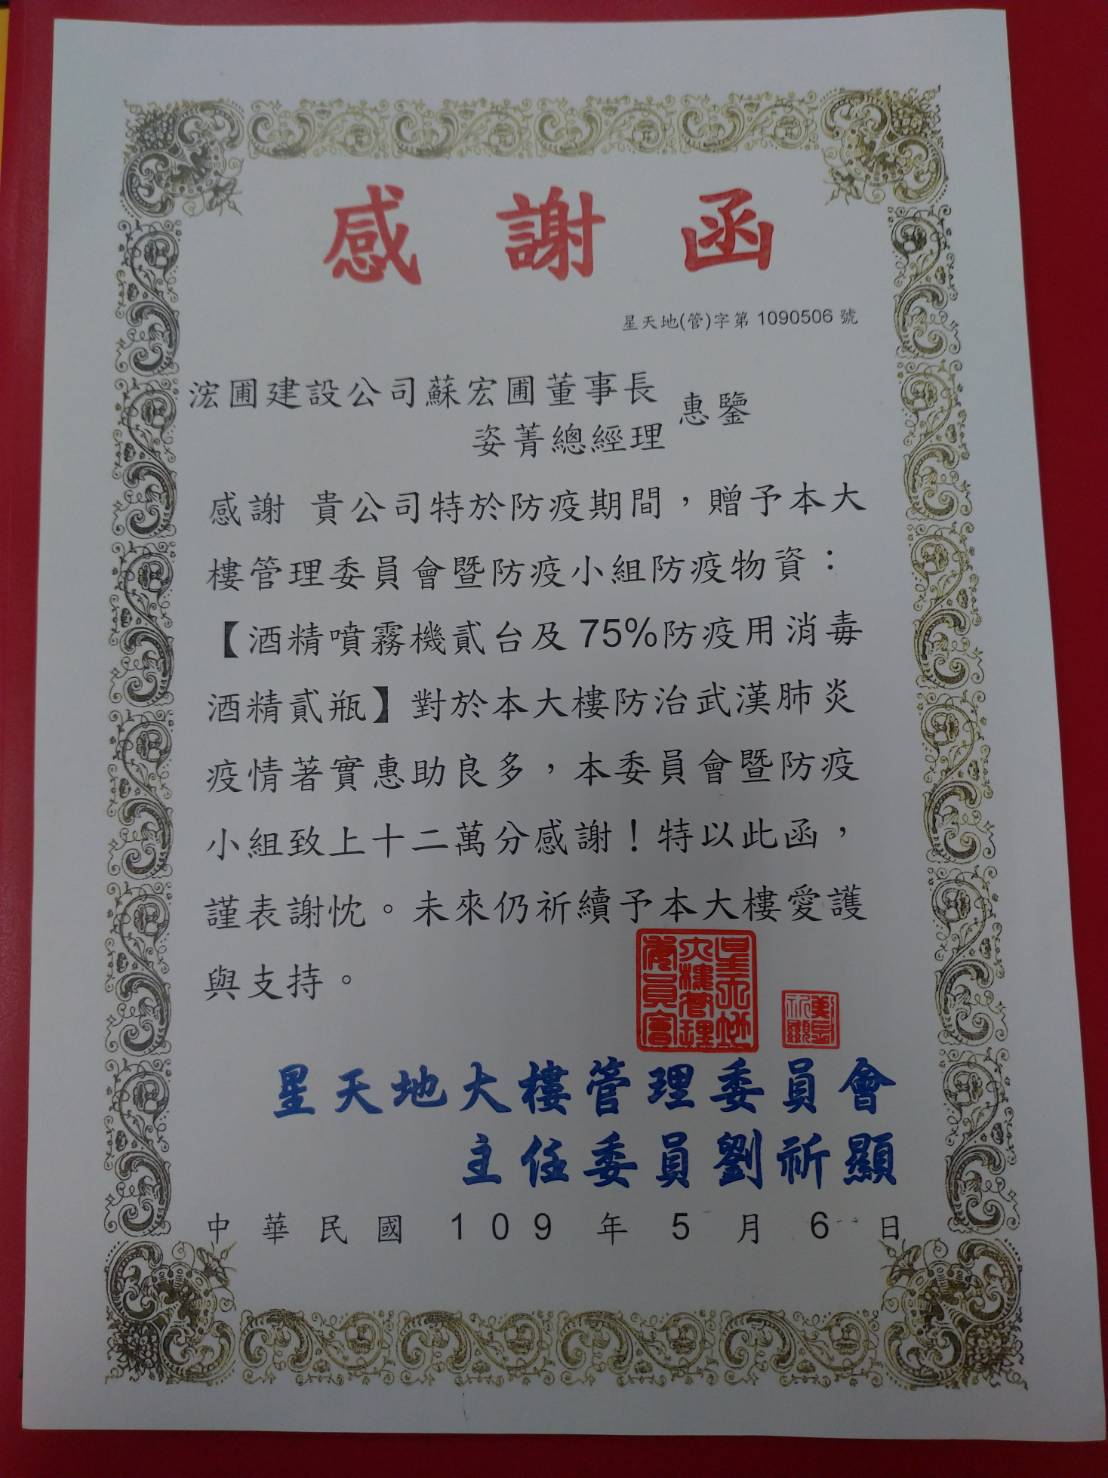 感謝函
星天地(管)字第 1090506 號
浤圃建設公司蘇宏圃董事長 惠鑒
姿菁總經理
感謝 貴公司特於防疫期間，贈予本大
樓管理委員會暨防疫小組防疫物資：
【酒精噴霧機貳台及 75%防疫用消毒
酒精貳瓶】對於本大樓防治武漢肺炎
疫情著實惠助良多，本委員會暨防疫
小組致上十二萬分感謝！特以此函，
謹表謝忱。未來仍祈續予本大樓愛護
與支持。
星天地大樓管理委員會
劉祈顯
星天地大樓管理委員會
主任委員劉祈顯
中華民國 109 年 5 月 6 日